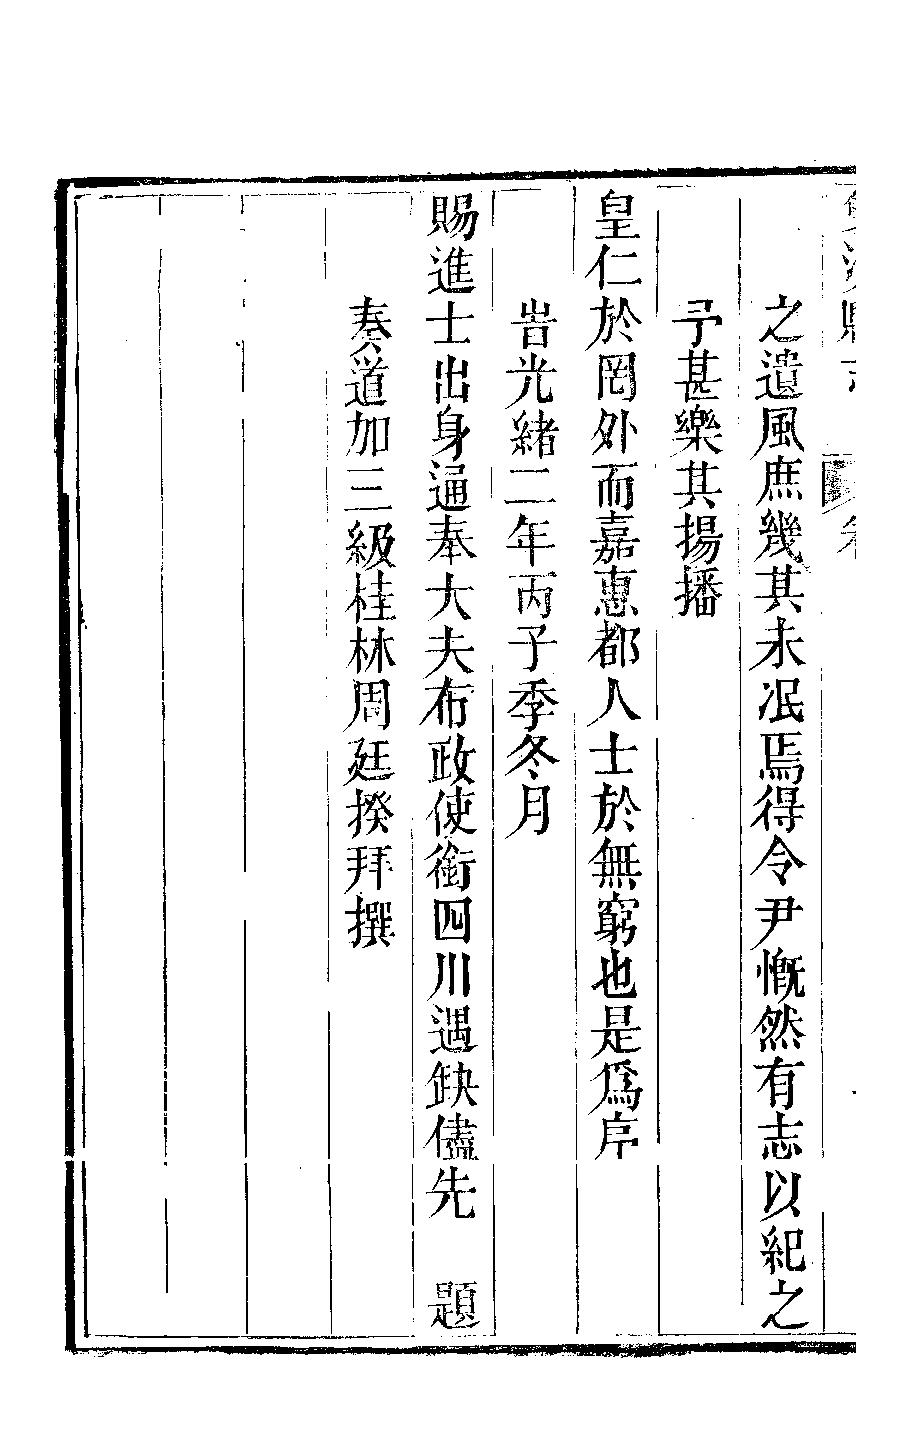 之遺風庶幾其未冺焉得令尹慨然有志以紀之
予甚樂其揚播
皇仁於罔外而嘉惠都人士於無窮也是爲序
旹光緒二年丙子季冬月
賜進士出身通奉大夫布政使銜四川遇缺儘先　題
奏道加三級桂林周廷揆拜撰